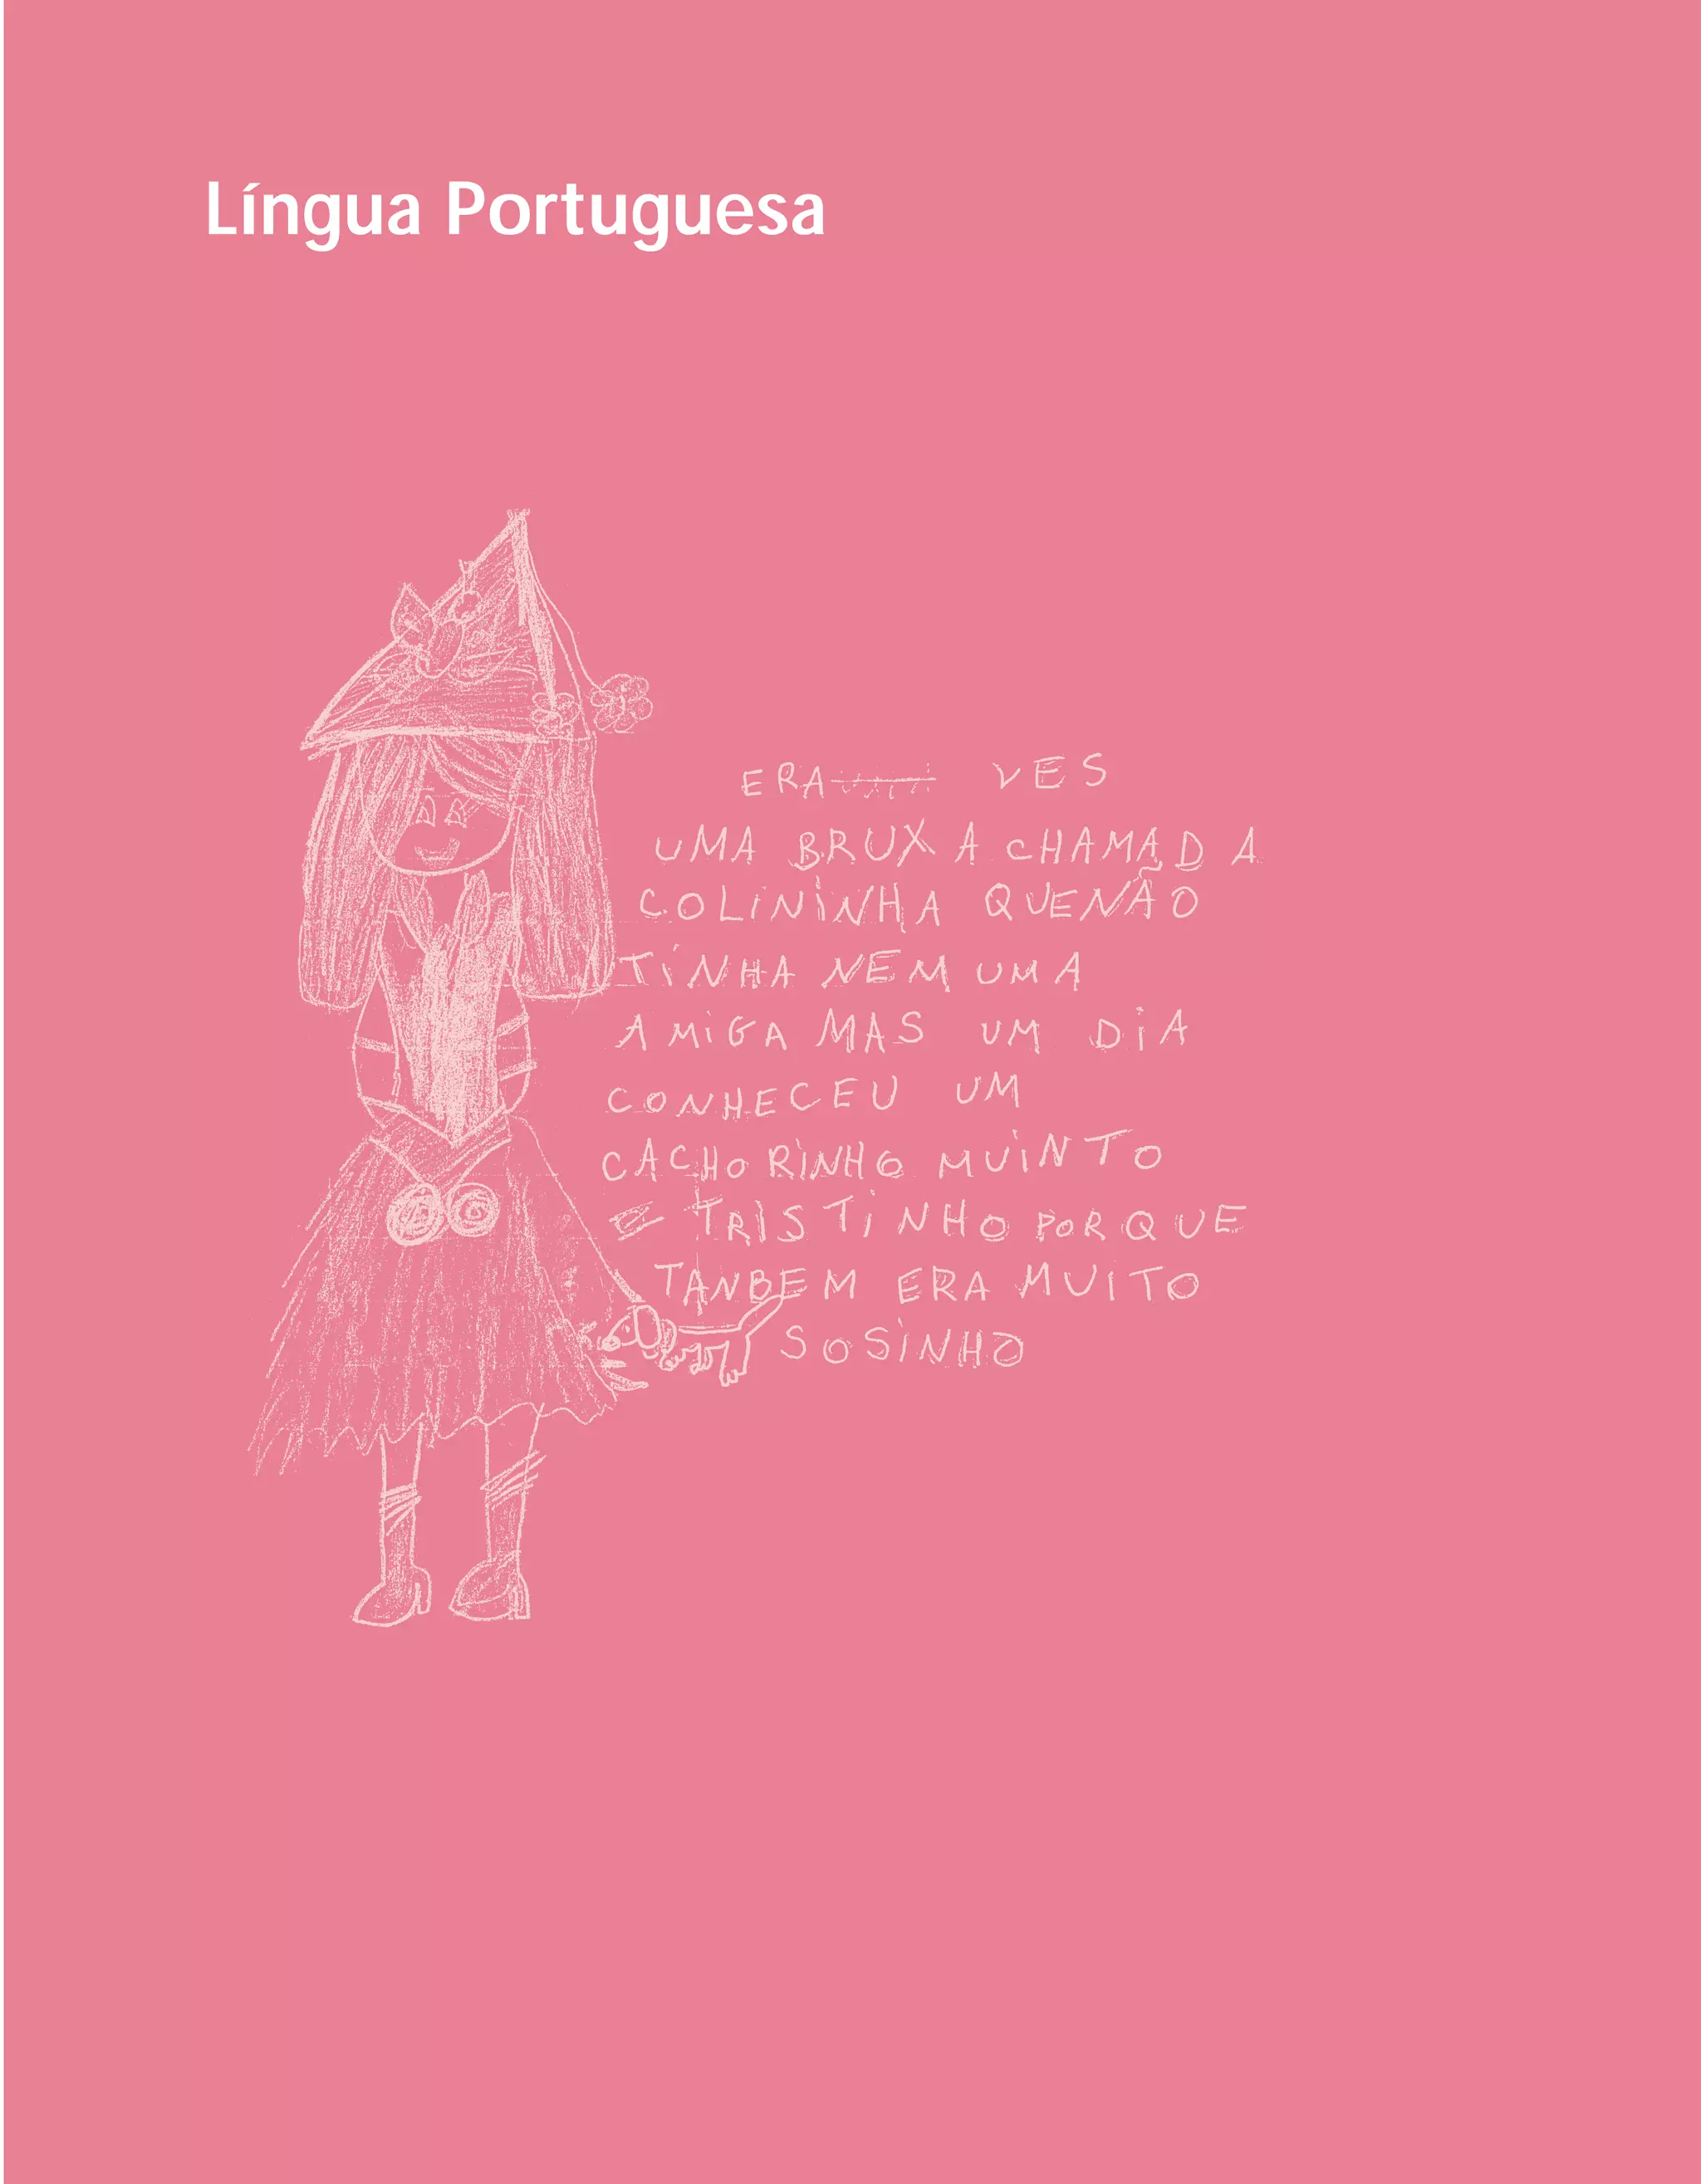 Língua Portuguesa
ERA VES
UMA BRUXA CHAMADA
COLININHA QUENÃO
TINHA NEM UMA
AMIGA MAS UM DIA
CONHECEU UM
CACHORINHO MUINTO
E TRISTINHO PORQUE
TANBEM ERA MUITO
SOSINHO